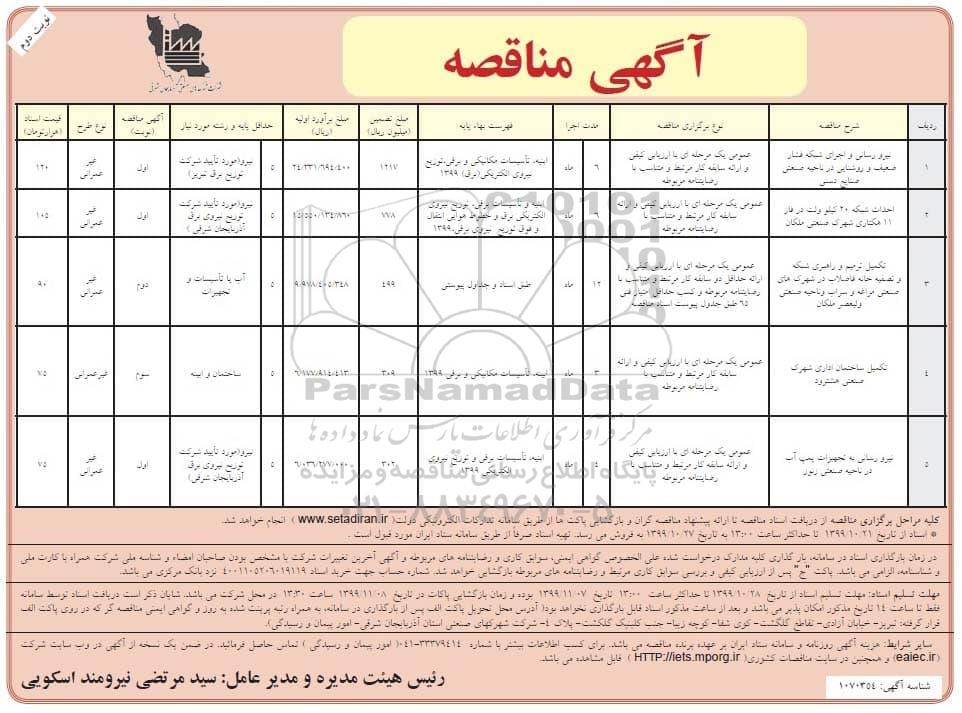 نوبت دوم
آگهی مناقصه
ردیف
شرح مناقصه
نوع برگزاری مناقصه
مدت اجرا
فهرست بهاء پایه
مبلغ تضمین
(میلیون ریال)
مبلغ برآورد اولیه
(ریال)
حداقل پایه و رشته مورد نیاز
آگهی مناقصه
(نوبت)
نوع طرح
قیمت اسناد
(هزارتومان)
۱
نیرو رسانی و اجرای شبکه فشار
ضعیف و روشنایی در ناحیه صنعتی
صنایع دستی
عمومی یک مرحله ای با ارزیابی کیفی
و ارائه سابقه کار مرتبط و متناسب با
رضایتنامه مربوطه
۶
ماه
ابنیه، تأسیسات مکانیکی و برقی،توزیع
نیروی الکتریکی(برق) ۱۳۹۹
۱۲۱۷
۲۴/۳۳۱/۶۹۴/۴۰۰
۵
نیرو(مورد تأیید شرکت
توزیع برق تبریز)
اول
غیر
عمرانی
۱۲۰
۲
احداث شبکه ۲۰ کیلو ولت در فاز
۱۱ هکتاری شهرک صنعتی ملکان
عمومی یک مرحله ای با ارزیابی کیفی و ارائه
سابقه کار مرتبط و متناسب با
رضایتنامه مربوطه
۶
ماه
ابنیه و تأسیسات برقی، توزیع نیروی
الکتریکی برق و خطوط هوایی انتقال
و فوق توزیع نیروی برقی،۱۳۹۹
۷۷۸
۱۵/۵۵۰/۱۳۴/۸۶۰
۵
نیرو(مورد تأیید شرکت
توزیع نیروی برق
آذربایجان شرقی )
اول
غیر
عمرانی
۱۰۵
۳
تکمیل ترمیم و راهبری شبکه
و تصفیه خانه فاضلاب در شهرک های
صنعتی مراغه و سراب وناحیه صنعتی
ولیعصر ملکان
عمومی یک مرحله ای با ارزیابی کیفی و
ارائه حداقل دو سابقه کار مرتبط و متناسب با
رضایتنامه مربوطه و کسب حداقل امتیاز فنی
۶۵ طبق جدول پیوست اسناد مناقصه
۱۲
ماه
طبق اسناد و جداول پیوستی
۴۹۹
۹/۹۷۸/۴۰۵/۳۴۸
۵
آب یا تأسیسات و
تجهیزات
دوم
غیر
عمرانی
۹۰
۴
تکمیل ساختمان اداری شهرک
صنعتی هشترود
عمومی یک مرحله ای با ارزیابی کیفی و ارائه
سابقه کار مرتبط و متناسب با
رضایتنامه مربوطه
۳
ماه
ابنیه، تأسیسات مکانیکی و برقی ۱۳۹۹
۳۰۹
۶/۱۷۷/۹۱۴/۴۱۳
۵
ساختمان و ابنیه
سوم
غیرعمرانی
۷۵
۵
نیرو رسانی به تجهیزات پمپ آب
در ناحیه صنعتی زنوز
عمومی یک مرحله ای با ارزیابی کیفی
و ارائه سابقه کار مرتبط و متناسب با
رضایتنامه مربوطه
۴
ماه
ابنیه، تأسیسات برقی و توزیع نیروی
الکتریکی ۱۳۹۹
۳۰۲
۶/۰۳۶/۲۷۷/۰۰۰
۵
نیرو(مورد تأیید شرکت
توزیع نیروی برق
آذربایجان شرقی)
اول
غیر
عمرانی
۷۵
ParsNamadData
مرکز فرآوری اطلاعات پارس نماد داده ها
پایگاه اطلاع رسانی مناقصه و مزایده
۰۲۱-۸۸۳۴۹۶۷۰-۵
کلیه مراحل برگزاری مناقصه از دریافت اسناد مناقصه تا ارائه پیشنهاد مناقصه گران و بازگشایی پاکت ها از طریق سامانه تدارکات الکترونیکی دولت( www.setadiran.ir ) انجام خواهد شد.
* اسناد از تاریخ ۱۳۹۹/۱۰/۲۱ تا حداکثر ساعت ۱۳:۰۰ به تاریخ ۱۳۹۹/۱۰/۲۷ به فروش می رسد. تهیه اسناد صرفاً از طریق سامانه ستاد ایران مورد قبول است .
در زمان بارگذاری اسناد در سامانه، بار گذاری کلیه مدارک درخواست شده علی الخصوص گواهی ایمنی، سوابق کاری و رضایتنامه های مربوطه و آگهی آخرین تغییرات شرکت با مشخص بودن صاحبان امضاء و شناسه ملی شرکت همراه با کارت ملی
و شناسنامه، الزامی می باشد. پاکت "ج" پس از ارزیابی کیفی و بررسی سوابق کاری مرتبط و رضایتنامه های مربوطه بازگشایی خواهد شد. شماره حساب جهت خرید اسناد ۴۰۰۱۱۰۵۲۰۶۰۱۹۱۱۹ نزد بانک مرکزی می باشد.
مهلت تسلیم اسناد: مهلت تسلیم اسناد از تاریخ ۱۳۹۹/۱۰/۲۸ تا حداکثر ساعت ۱۳:۰۰ تاریخ ۱۳۹۹/۱۱/۰۷ بوده و زمان بازگشایی پاکات در تاریخ ۱۳۹۹/۱۱/۰۸ ساعت ۱۳:۳۰ در محل شرکت می باشد. شایان ذکر است دریافت اسناد توسط سامانه
فقط تا ساعت ۱۴ تاریخ مذکور امکان پذیر می باشد و بعد از ساعت مذکور اسناد قابل بارگذاری نخواهد بود( آدرس محل تحویل پاکت الف پس از بارگذاری در سامانه، به همراه رتبه پرینت شده به روز و گواهی ایمنی مناقصه گر که در روی پاکت الف
قرار گرفته: تبریز- خیابان آزادی- تقاطع گلگشت- کوی شفا- کوچه زیبا- جنب کلینیک گلگشت- پلاک ۴- شرکت شهرکهای صنعتی استان آذربایجان شرقی- امور پیمان و رسیدگی).
سایر شرایط: هزینه آگهی روزنامه و سامانه ستاد ایران بر عهده برنده مناقصه می باشد. برای کسب اطلاعات بیشتر با شماره ۳۳۳۷۹۴۱۴-۰۴۱( امور پیمان و رسیدگی ) تماس حاصل فرمائید. در ضمن یک نسخه از آگهی در وب سایت شرکت
(eaiec.ir) و همچنین در سایت مناقصات کشوری( HTTP://iets.mporg.ir ) قابل مشاهده می باشد.
رئیس هیئت مدیره و مدیر عامل: سید مرتضی نیرومند اسکویی
شناسه آگهی: ۱۰۷۰۳۵۴